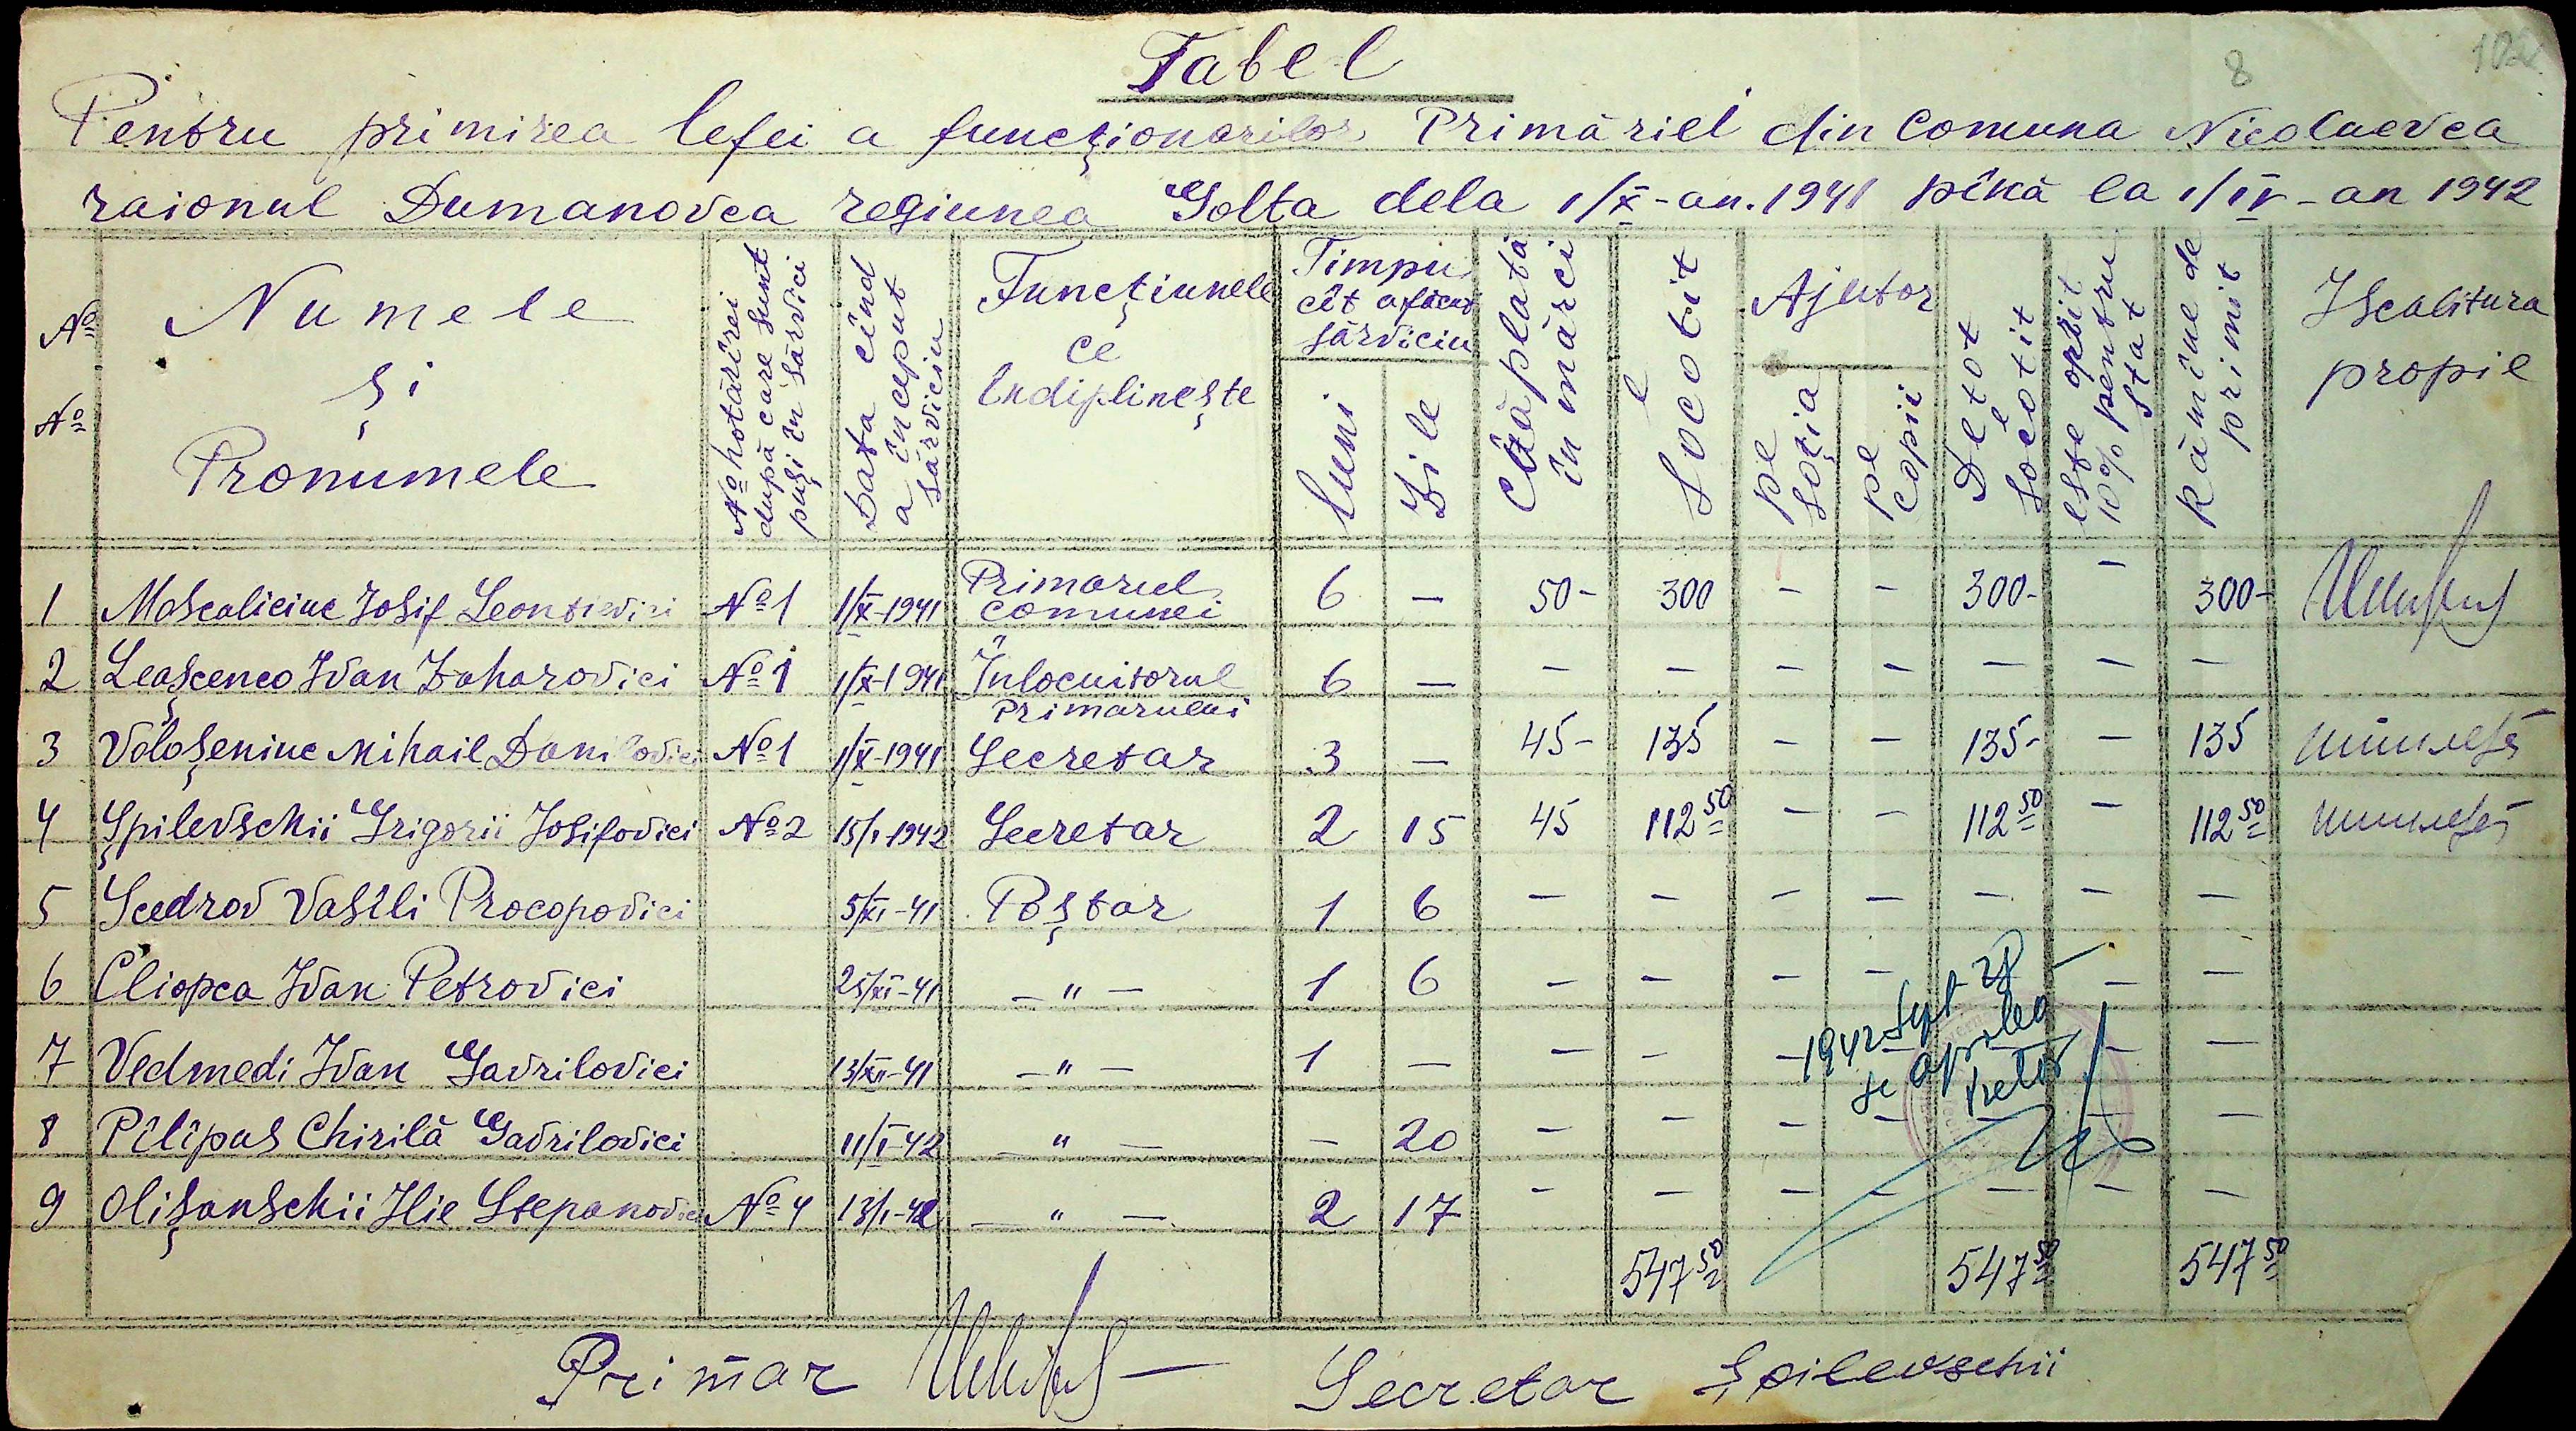 Tabel
8
102
Pentru primirea lefei a funcţionarilor Primăriei din Comuna Nicolaevca
raionul Dumanovca regiunea Golta dela 1/X-an. 1941 pînă la 1/IV-an 1942
№ №
Numele
şi
Pronumele
№ hotărîrei
după care sunt
puşi în sărvici
Data cînd
a început
sărviciu
Funcţiunele
ce
Indiplineşte
Timpu
cît a făcut
sărviciu
luni
Zile
Cîtă plată
în mărci
e
Socotit
Ajutor
pe
soţia
pe
copii
De tot
e
Socotit
este oprit
10% pentru
stat
Rămîne de
primit
Iscalitura
propie
1 Moscaliciuc Iosif Leontievici №1 1/X-1941 Primarul comunei 6 — 50- 300 - - 300- - 300-
2 Leaşcenco Ivan Zaharovici №1 1/X-1941 Înlocuitorul Primarului 6 — — — — — — — —
3 Voloşeniuc Mihail Danilovici №1 1/X-1941 Secretar 3 — 45- 135 - - 135- - 135
4 Şpilevschii Grigorii Iosifovici №2 15/I-1942 Secretar 2 15 45 112 50 - - 112 50 - 112 50
5 Scedrov Vasîli Procopovici 5/XI-41 Poştar 1 6 — — — — — — —
6 Cliopca Ivan Petrovici 25/XI-41 —"— 1 6 — — — — — —
7 Vedmedi Ivan Gavrilovici 13/XII-41 —"— 1 — — — — — —
8 Pîlîpas Chirilă Gavrilovici 11/I-42 —"— — 20 — — — — — — —
9 Olişanschii Ilie Stepanovici №4 13/I-42 —"— 2 17 — — — — — — —
547 50 547 50 547 50
1942 Sept 28
se aproba
Pretor
Primar
Secretar Şpilevschii